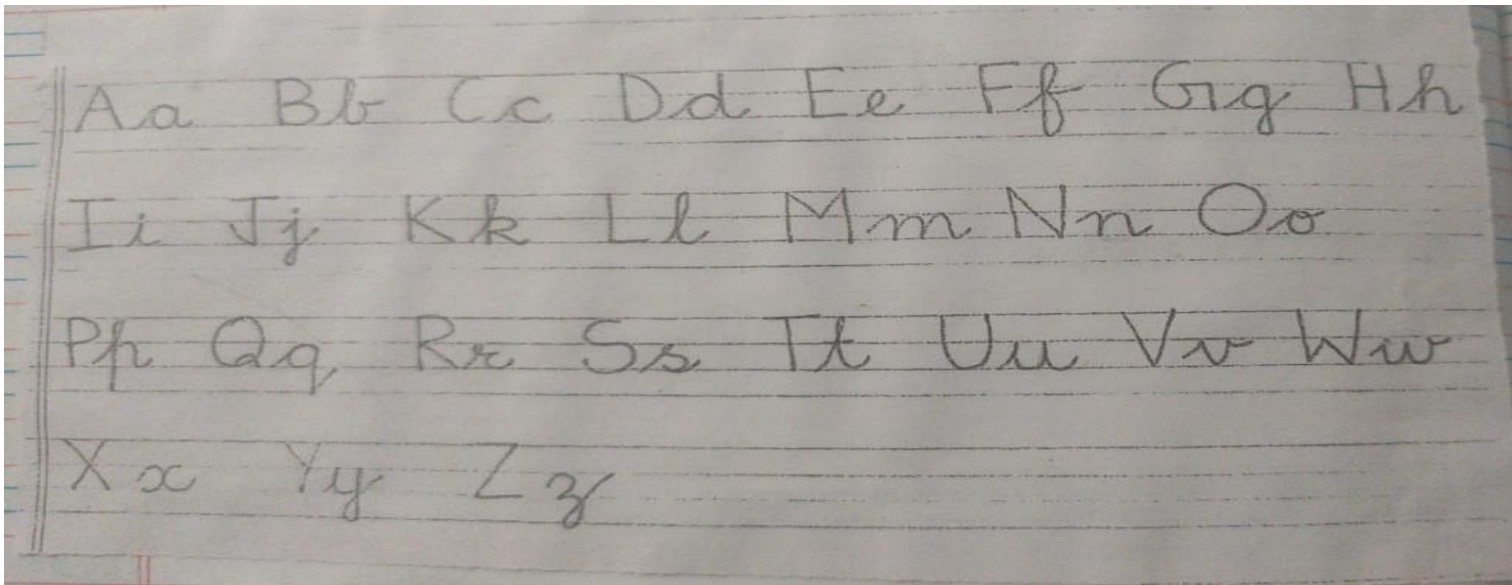 Aa Bb Cc Dd Ee Ff Gg Hh
Ii Jj Kk Ll Mm Nn Oo
Pp Qq Rr Ss Tt Uu Vv Ww
Xx Yy Zz